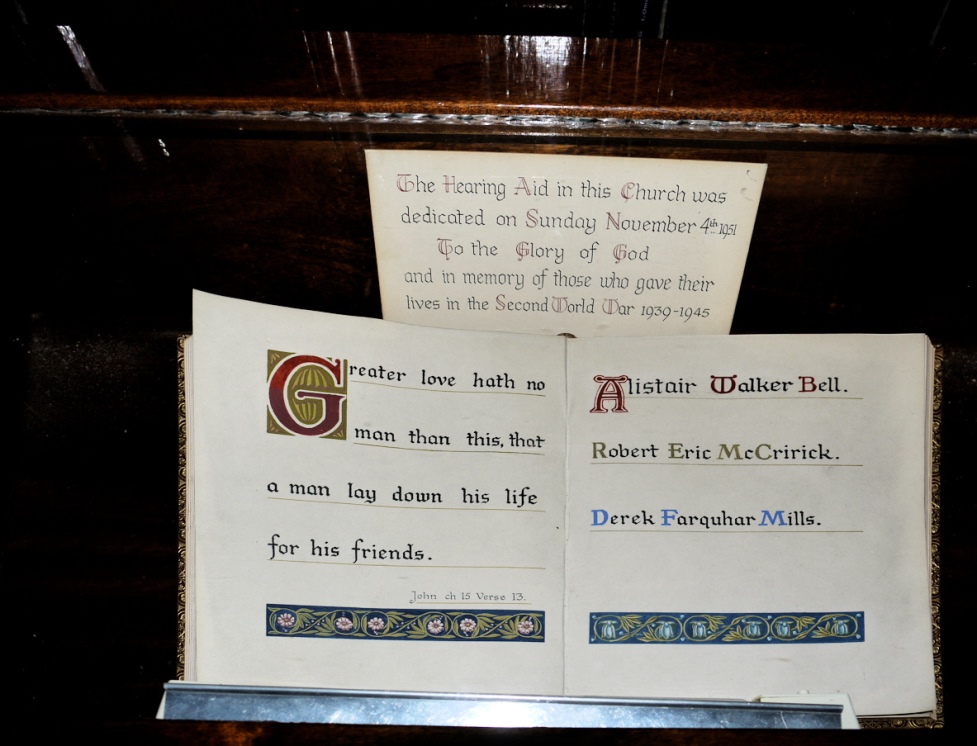 The Hearing Aid in this Church was
dedicated on Sunday November 4th 1951
To the Glory of God
and in memory of those who gave their
lives in the Second World War 1939-1945
Greater love hath no
man than this, that
a man lay down his life
for his friends.
John ch 15 Verse 13.
Alistair Walker Bell.
Robert Eric McCririck.
Derek Farquhar Mills.